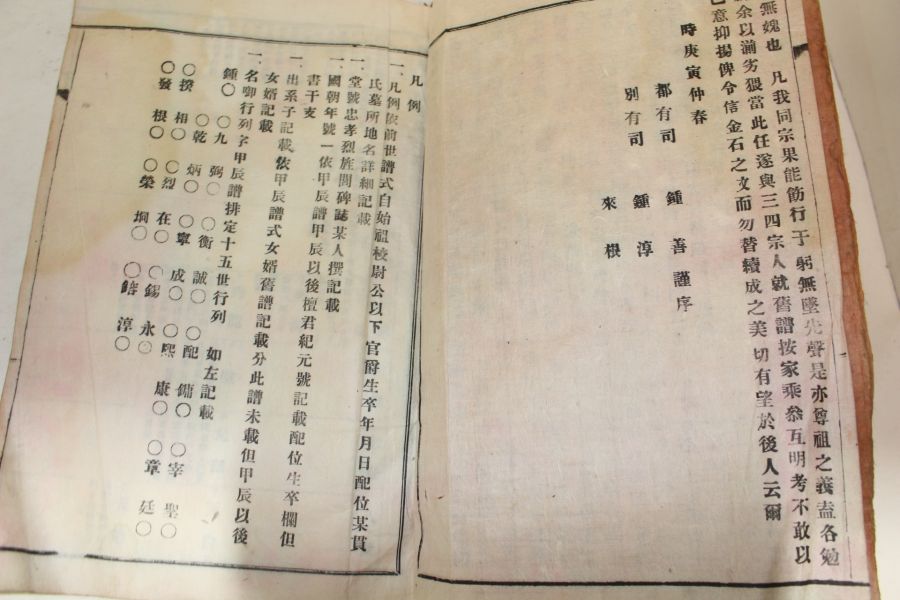 無媿也 凡我同宗果能飭行于躬無墜先聲是亦尊祖之義盍各勉
余以湔劣猥當此任遂與三四宗人就舊譜按家乘叅互明考不敢以
意抑揚俾令信金石之文而勿替續成之美切有望於後人云爾
時庚寅仲春
都有司 鍾善謹序
別有司 鍾淳
來根
凡例
一、凡例依前世譜式自始祖校尉公以下官爵生卒年月日配位某貫
氏墓所地名詳細記載
一、堂號忠孝烈旌閭碑誌某人撰記載
一、國朝年號一依甲辰譜甲辰以後檀君紀元號記載配位生卒欄但
書干支
一、出系子記載依甲辰譜式女婿舊譜記載分此譜未載但甲辰以後
女婿記載
一、名卿行列字甲辰譜排定十五世行列 如左記載
鍾〇 〇九 弼〇 〇衡 誠〇 〇配 傭〇 〇宰 聖〇
〇乾 炳〇 〇寧 成〇 〇熙 康〇 〇章 廷〇
〇揆 相〇 〇烈 在〇 〇錫 永〇
〇發 根〇 〇榮 坰〇 〇鎔 淳〇